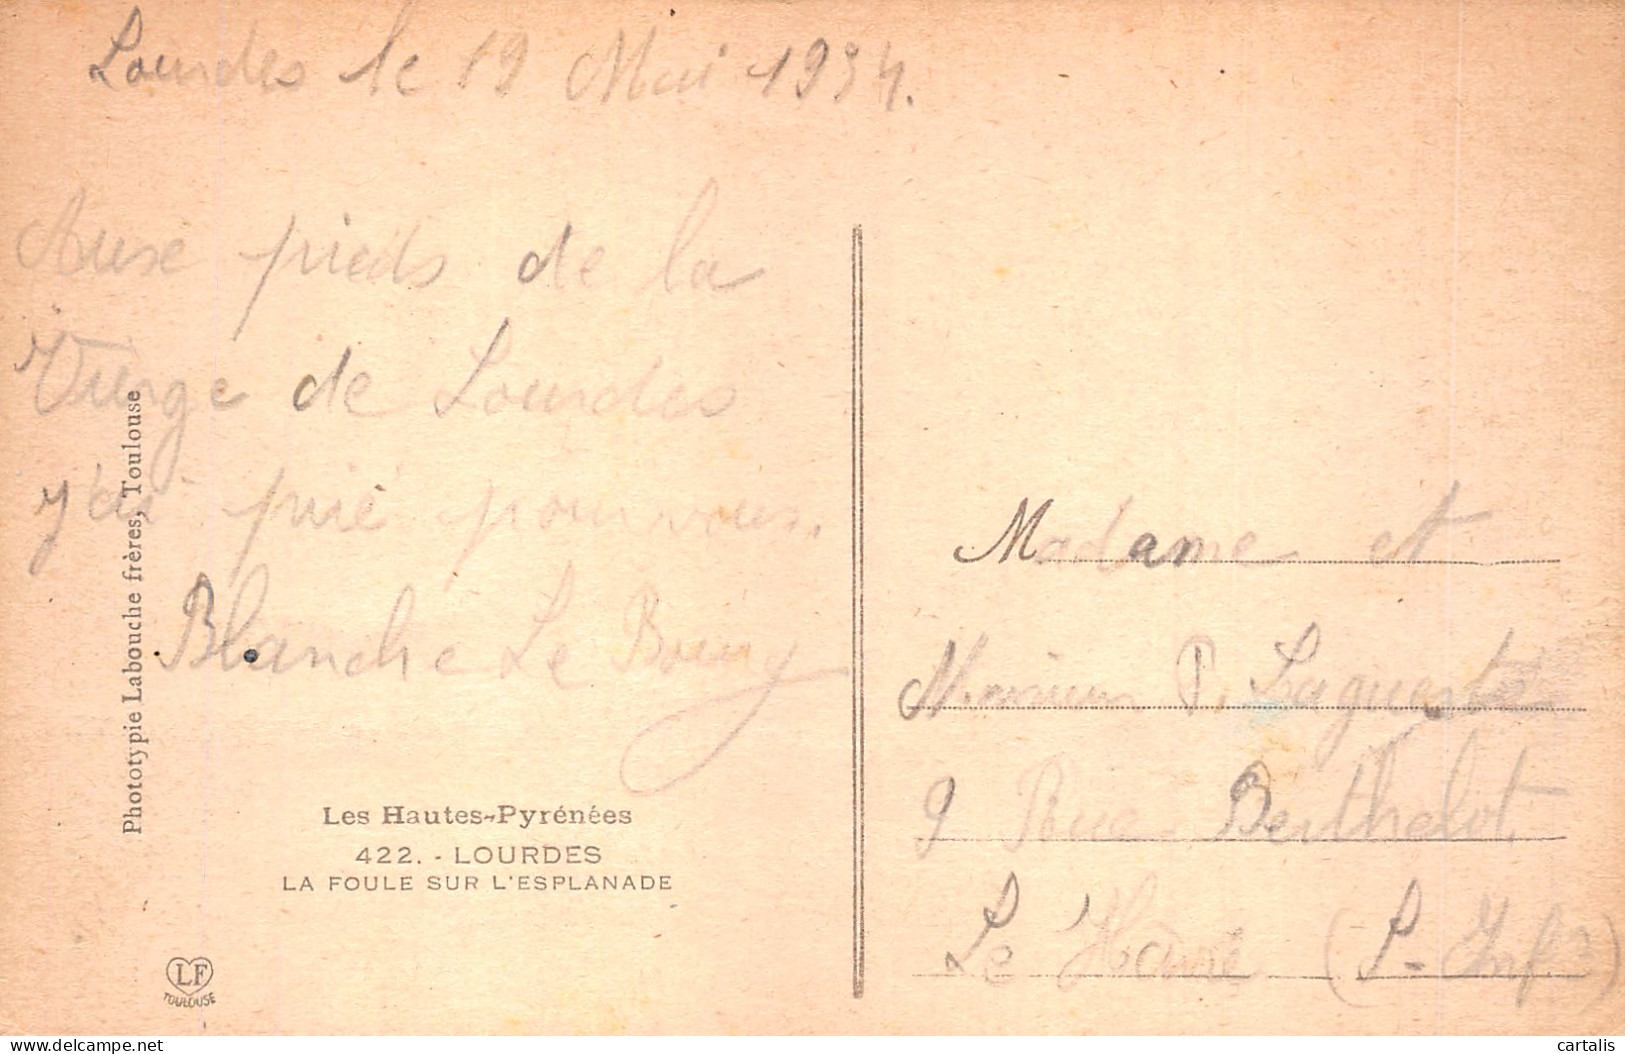 Lourdes le 19 Mai 1934.
Aux pieds de la
Vierge de Lourdes
j'ai prié pour vous.
Blanche Le Bourg
Madame et
Monsieur P. Lagueste
9 Rue Berthelot
Le Havre (S-Infre)
Phototypie Labouche frères, Toulouse
Les Hautes-Pyrénées
422. - LOURDES
LA FOULE SUR L'ESPLANADE
LF
TOULOUSE
delcampe.net
cartalis